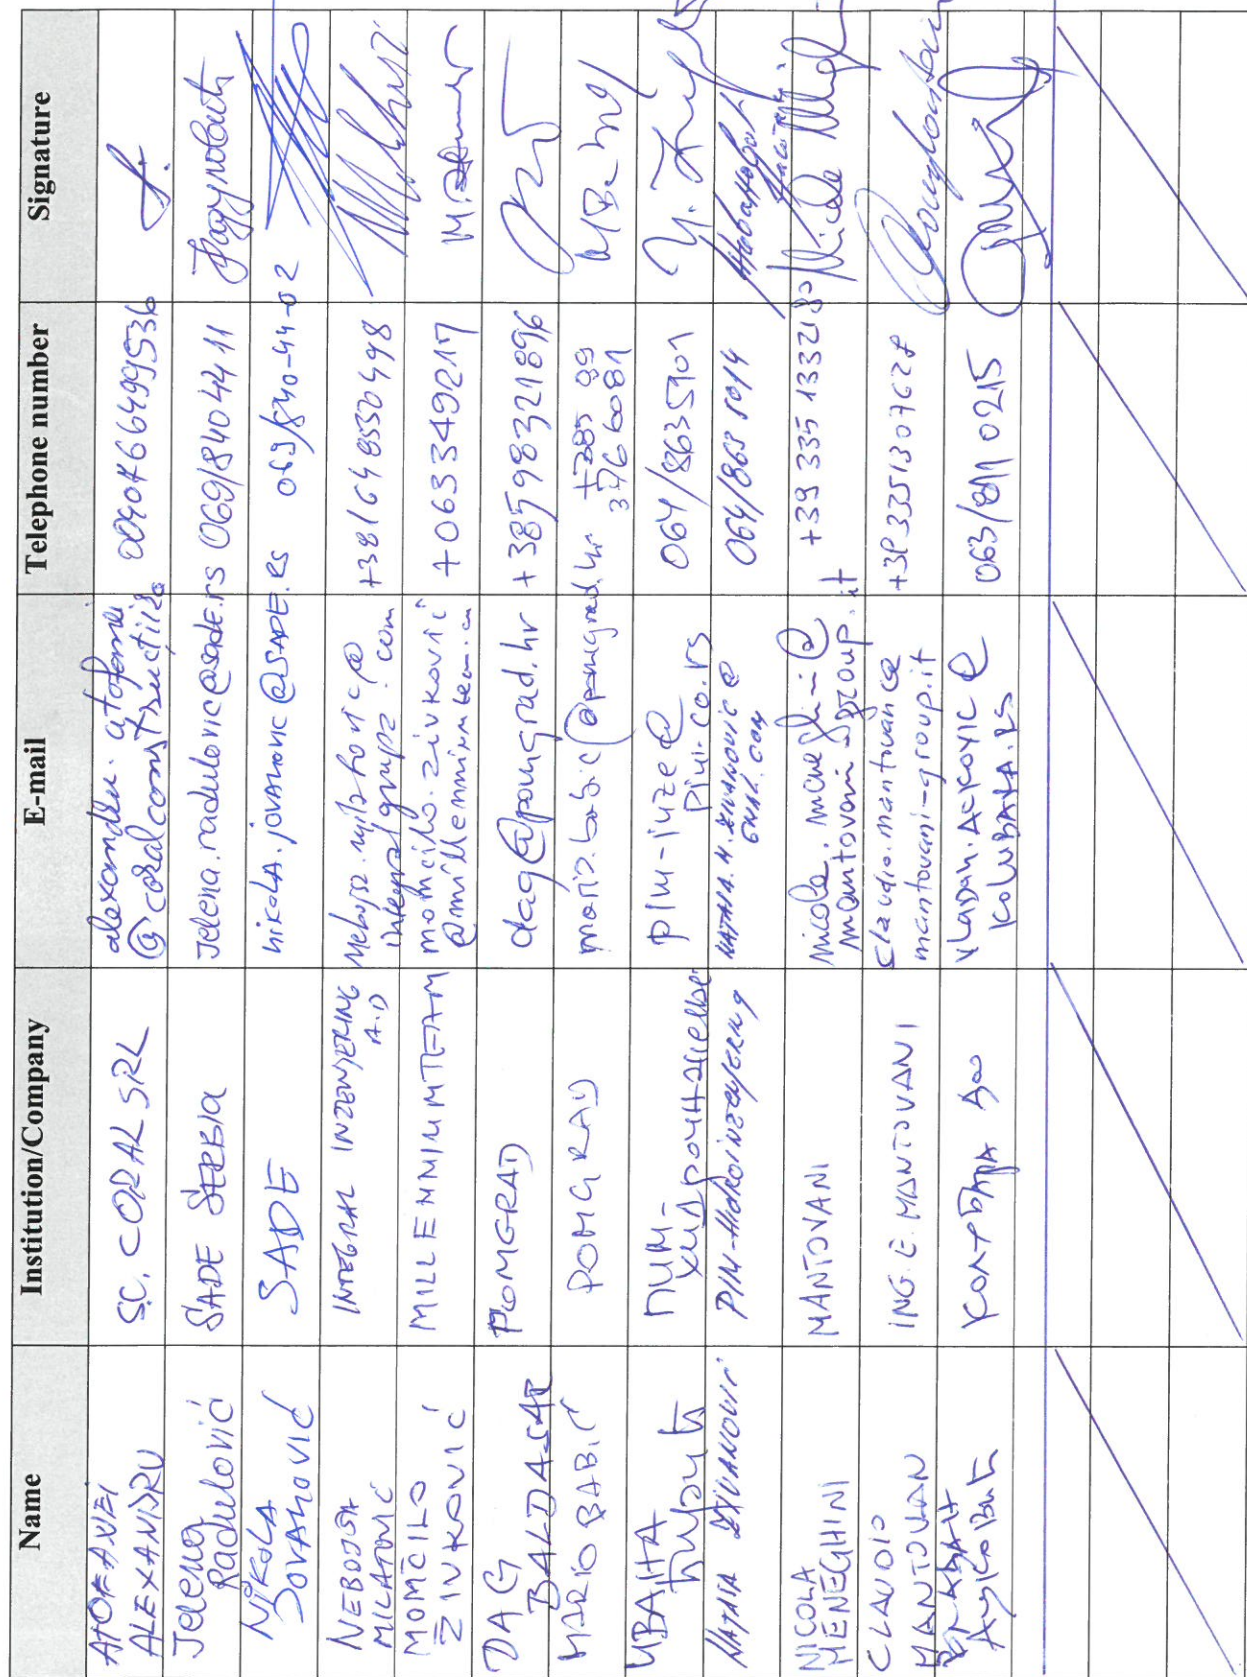 Name Institution/Company E-mail Telephone number Signature
ATOFANEI
ALEXANDRU
SC. CORAL SRL
alexandru.atofanei
@coralconstruct
Jelena
Radulović
SADE SERBIA
Jelena.radulovic@sade.rs
069/8404411
Nikola
Jovanović
SADE
nikola.jovanovic@SADE.RS
069/840-44-02
NEBOJŠA
MILATOVIĆ
INTEGRAL INZENJERING
A.D
integralgrupa.com
+381648550498
MOMČILO
ŽIVKOVIĆ
MILLENNIUM TEAM
momcilo.zivkovic
@millenniumteam
+063349217
DAG
BALDASAR
POMGRAD
dag@pomgrad.hr
+385998321896
MARIO BABIĆ
POMGRAD
mario.babic@pomgrad.hr
+385 99
376 6081
ИВАНА
ПИМ-
pim-inze@
pim.co.rs
064/8635901
NATAŠA ŽIVANOVIĆ
PIM-Hidroinženjering
NATASA.M.ZIVANOVIC@
GMAIL.COM
NICOLA
MENEGHINI
MANTOVANI
nicola.meneghini@
mantovanigroup.it
+39 335 1332180
CLAUDIO
MANTOVAN
ING. E. MANTOVANI
claudio.mantovan@
mantovani-group.it
+39 3351307628
КОЛУБАРА
vladan.
KOLUBARA.RS
063/811 0215